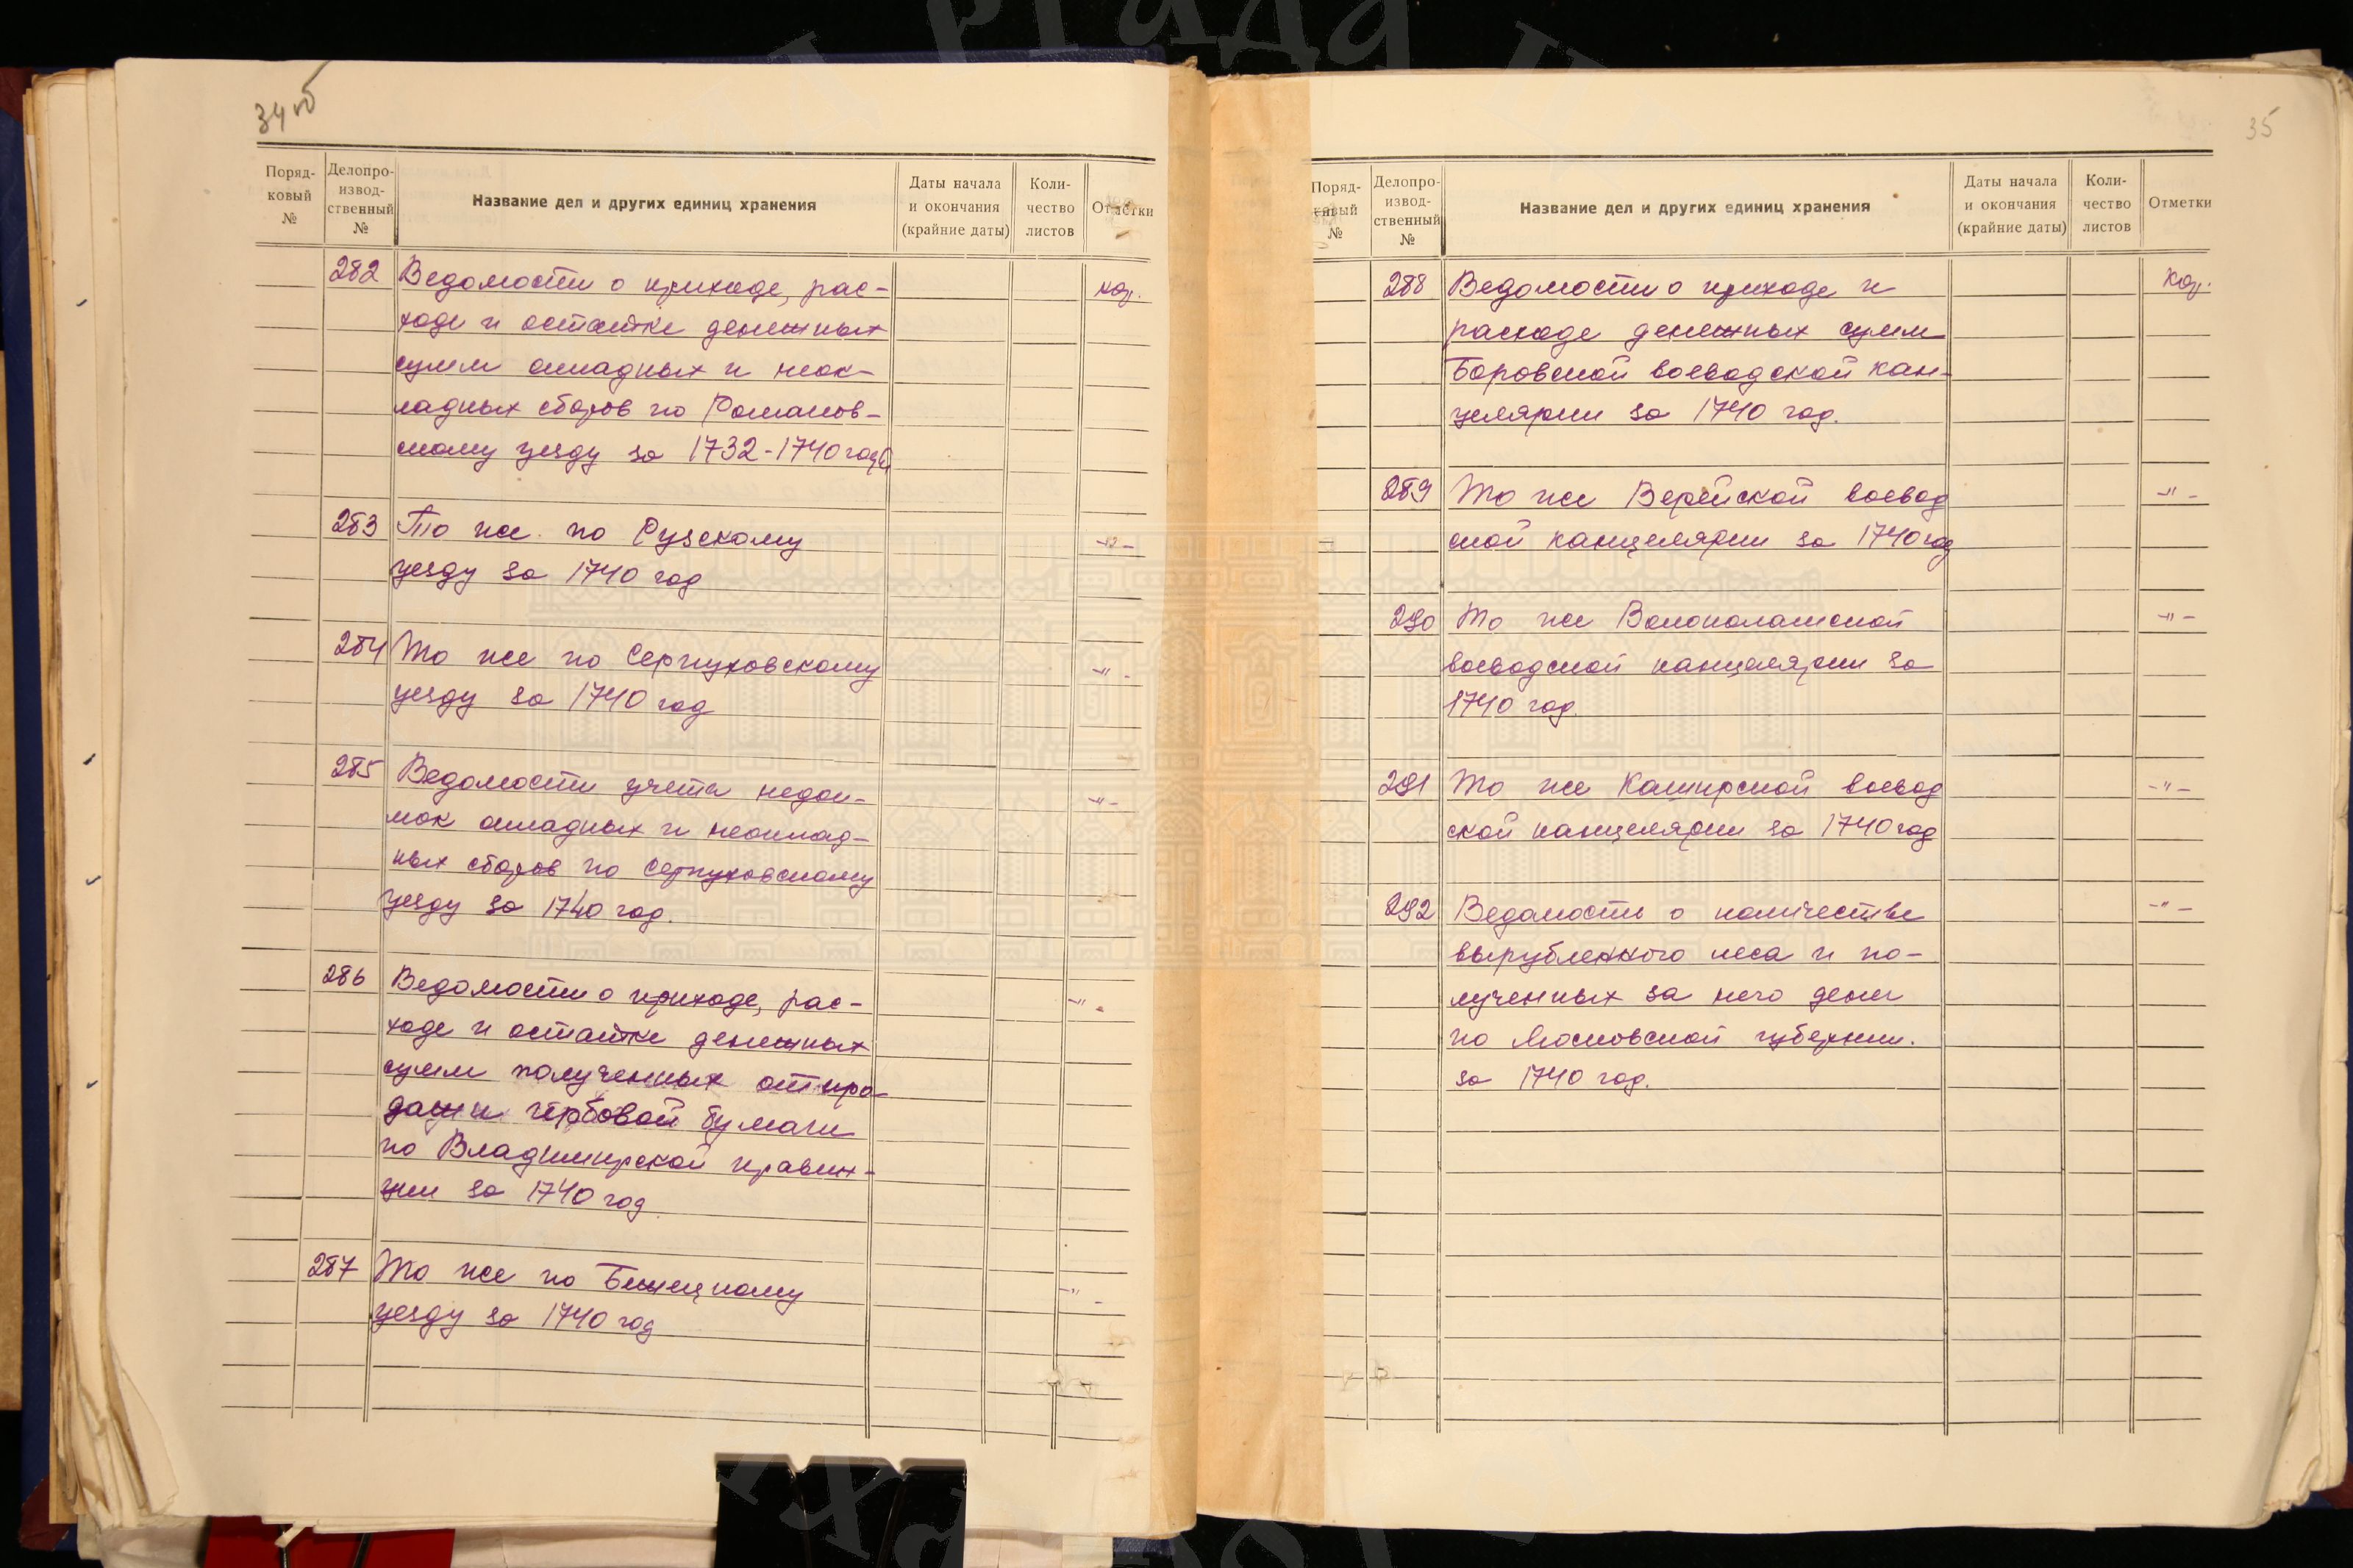 34об
Поряд-
ковый
№
Делопро-
извод-
ственный
№
Название дел и других единиц хранения
Даты начала
и окончания
(крайние даты)
Коли-
чество
листов
Отметки
282 Ведомости о приходе, рас- кор.
ходе и остатке денежных
сумм окладных и неок-
ладных сборов по Романов-
скому уезду за 1732-1740 года
283 То же по Рузскому -"-
уезду за 1740 год
284 То же по Серпуховскому -"-
уезду за 1740 год
285 Ведомости учета недои- -"-
мок окладных и неоклад-
ных сборов по Серпуховскому
уезду за 1740 год.
286 Ведомости о приходе, рас- -"-
ходе и остатке денежных
сумм полученных от про-
дажи гербовой бумаги
по Владимирской правин-
ции за 1740 год
287 То же по Бежецкому -"-
уезду за 1740 год
35
Поряд-
ковый
№
Делопро-
извод-
ственный
№
Название дел и других единиц хранения
Даты начала
и окончания
(крайние даты)
Коли-
чество
листов
Отметки
288 Ведомости о приходе и кор.
расходе денежных сумм
Боровской воеводской кан-
целярии за 1740 год.
289 То же Верейской воевод -"-
ской канцелярии за 1740 год
290 То же Волоколамской -"-
воеводской канцелярии за
1740 год.
291 То же Каширской воевод -"-
ской канцелярии за 1740 год
292 Ведомость о количестве -"-
вырубленного леса и по-
лученных за него денег
по Московской губернии.
за 1740 год.